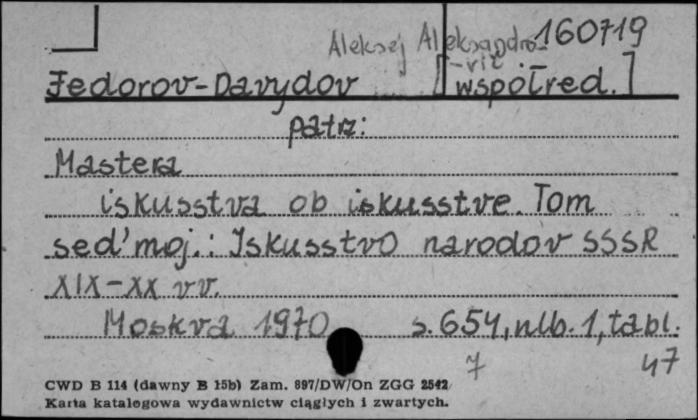 Aleksej Aleksandro- 160719
-vič
Fedorov-Davydov [współred.]
patrz:
Mastera
iskusstva ob iskusstve. Tom
sed'moj.: Iskusstvo narodov SSSR
XIX-XX vv.
Moskva 1970 s. 654, nlb. 1, tabl.
7 47
CWD B 114 (dawny B 15b) Zam. 897/DW/On ZGG 2542
Karta katalogowa wydawnictw ciągłych i zwartych.